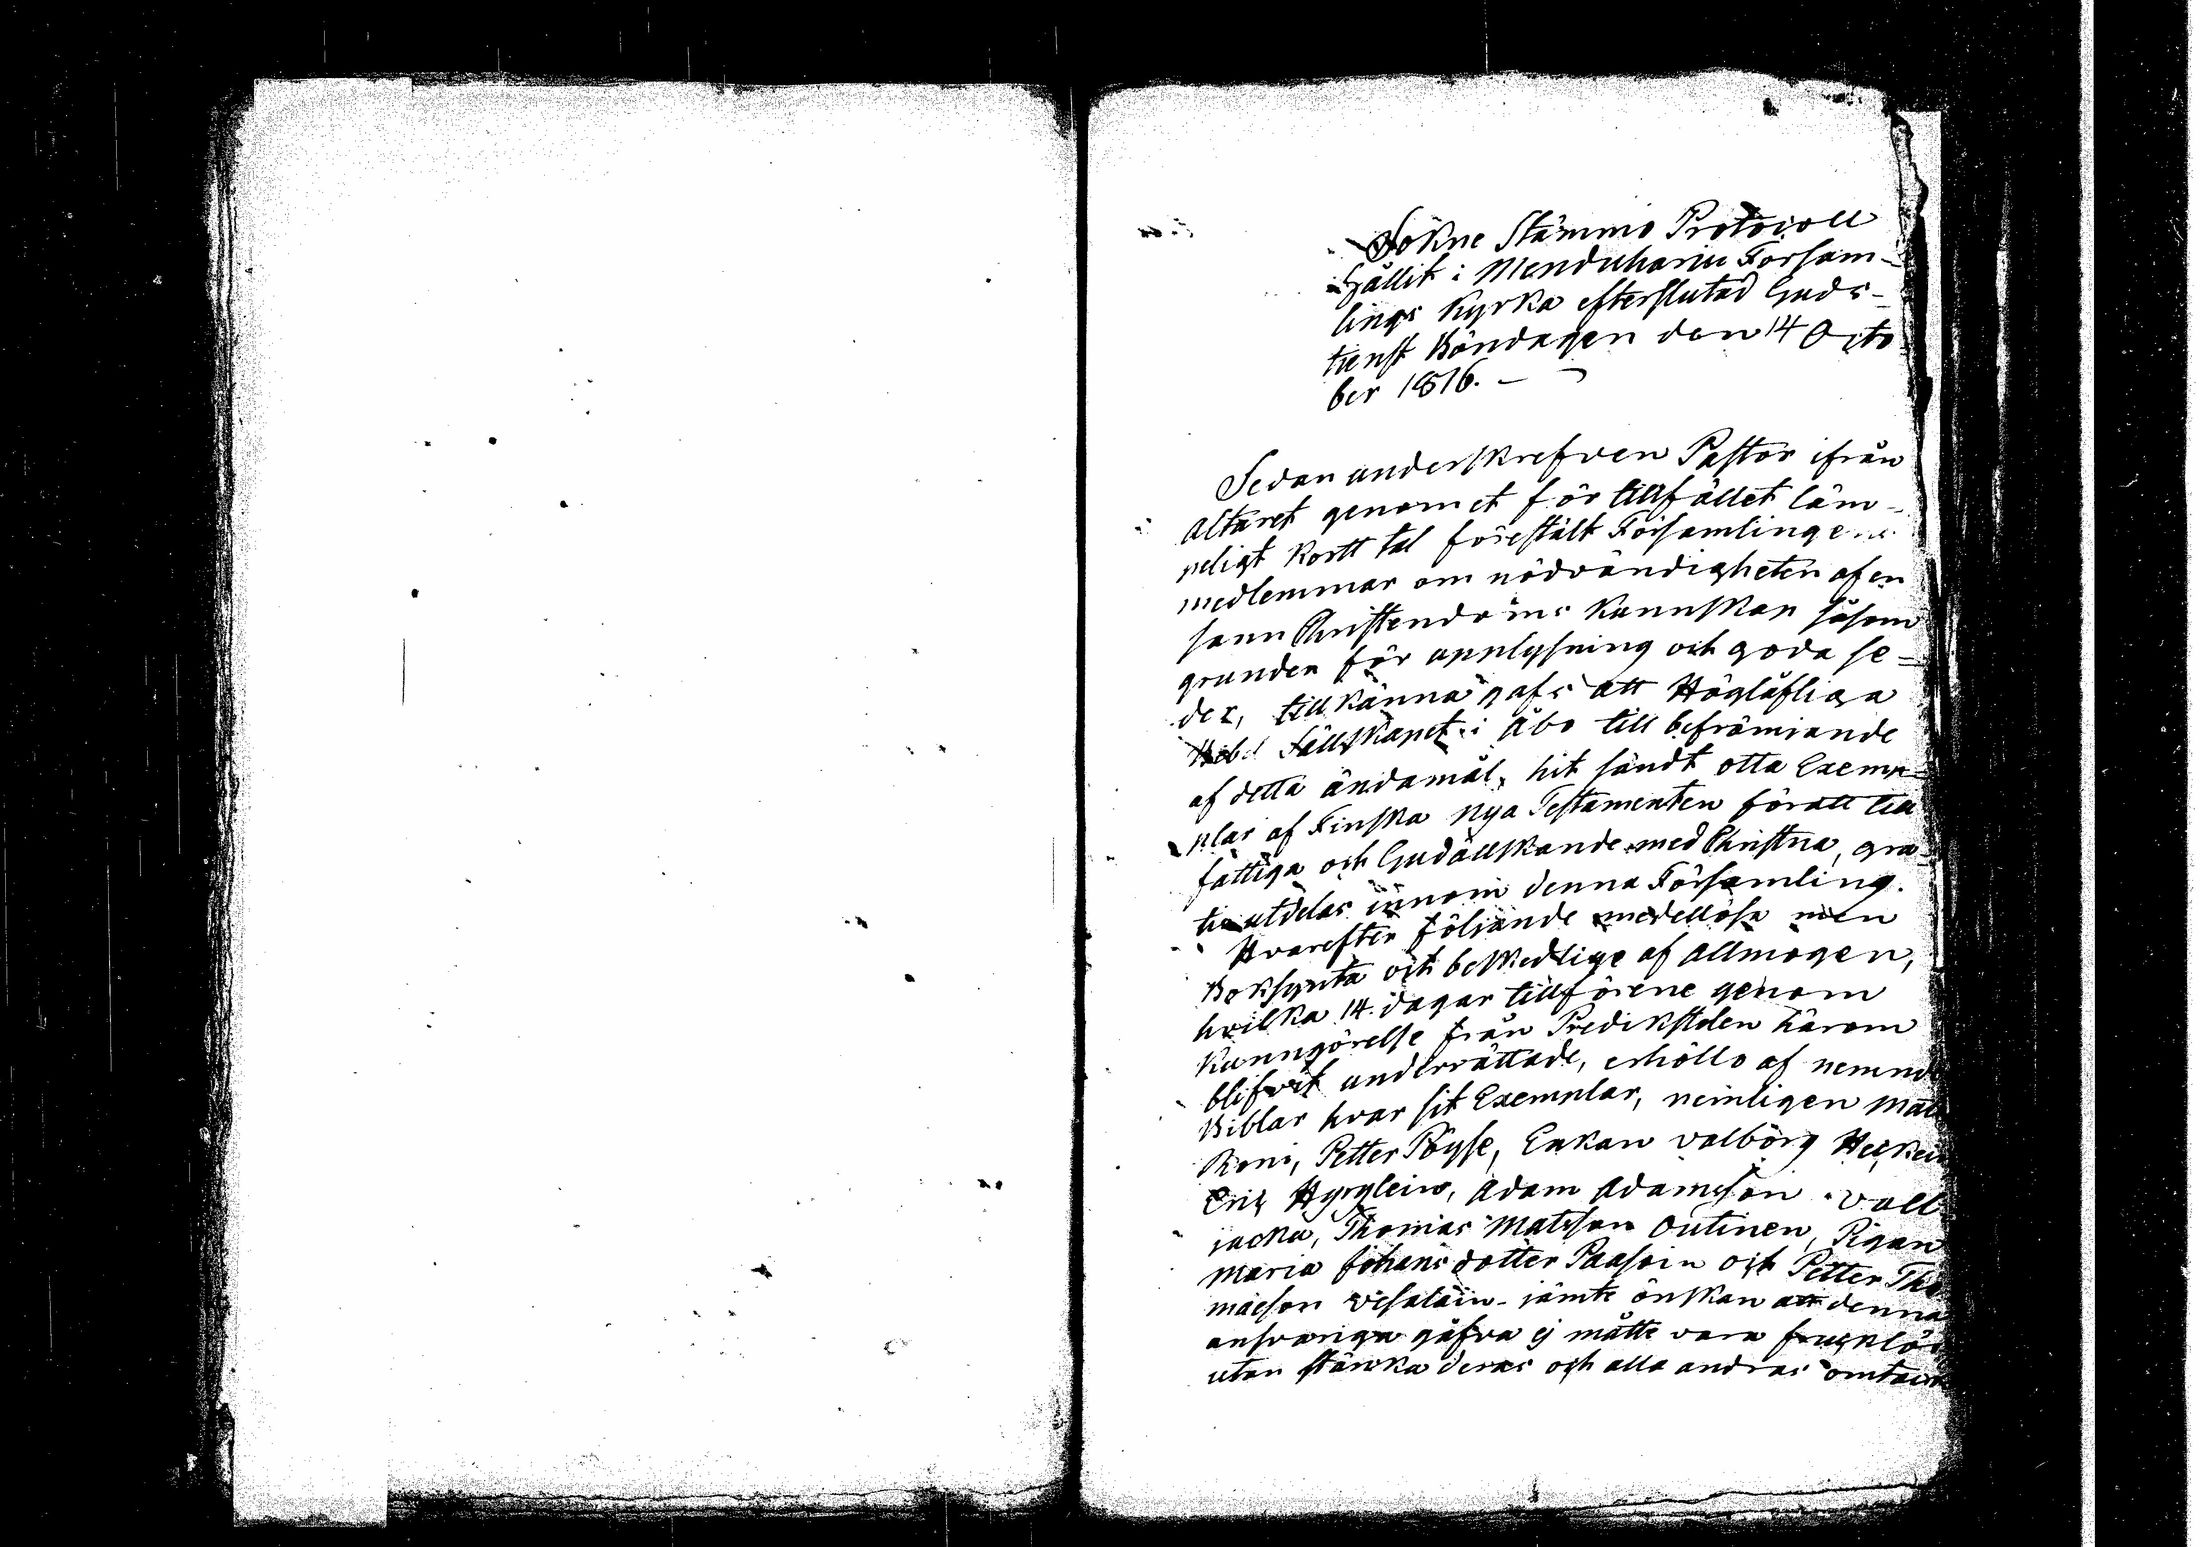 Sökne Stämmo Protocoll
Hållit i Menduharju Försam-
lings Kyrka efterslutad Guds-
tienst Böndagen den 14 Octo
ber 1816. -
Sedan underskrefven Pastor ifrån
altaret genom et för tillfället läm-
peligt kortt tal förestält Församlingens
medlemmar om nödvändigheten af en
sann Christendoms kunnskap såsom
grunden för upplysning och goda se=
der, tillkänna gafs att Höglåfliga
Bibel Sällskapet i Åbo till befrämjande
af detta ändamål, hit sändt otta Exem-
plar af Finska Nya Testamenten föratt till
fattiga och Gudälskande medChristna, gra-
tis utdelas innom denna Församling.
Hvarefter följande medellösa men
Boksynta och beskedlige af allmogen,
hvilka 14 dagar tillförene genom
Kunngörelse från Predikstolen härom
blifvit underrättade, erhöllo af nemnde
Biblar hvar sit Exemplar, nemligen
Petter Pöyse, Enkan Valborg
Eric Hyyryläin, Adam Adamsson
Thomas Matsson Outinen, Pigan
Maria Johansdotter Paasoin och Petter Tho
masson Vesalain - jämte önskan att denna
ansvariga gåfva ej måtte vara fruktlös
utan stärka deras och alla andras omtanka